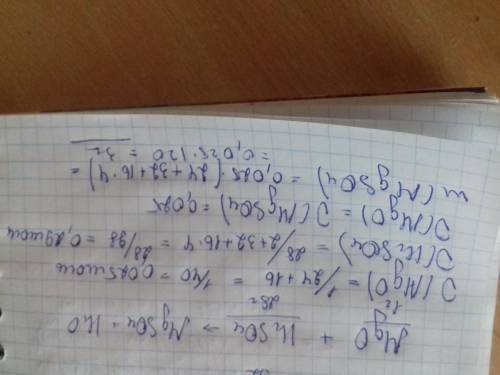 32
MgO + H₂SO₄ → MgSO₄ + H₂O
1г 28г
ν(MgO) = 1/24+16 = 1/40 = 0,025моль
ν(H₂SO₄) = 28/2+32+16·4 = 28/98 = 0,29моль
ν(MgO) = ν(MgSO₄) = 0,025
m(MgSO₄) = 0,025·(24+32+16·4) =
= 0,025·120 = 3г